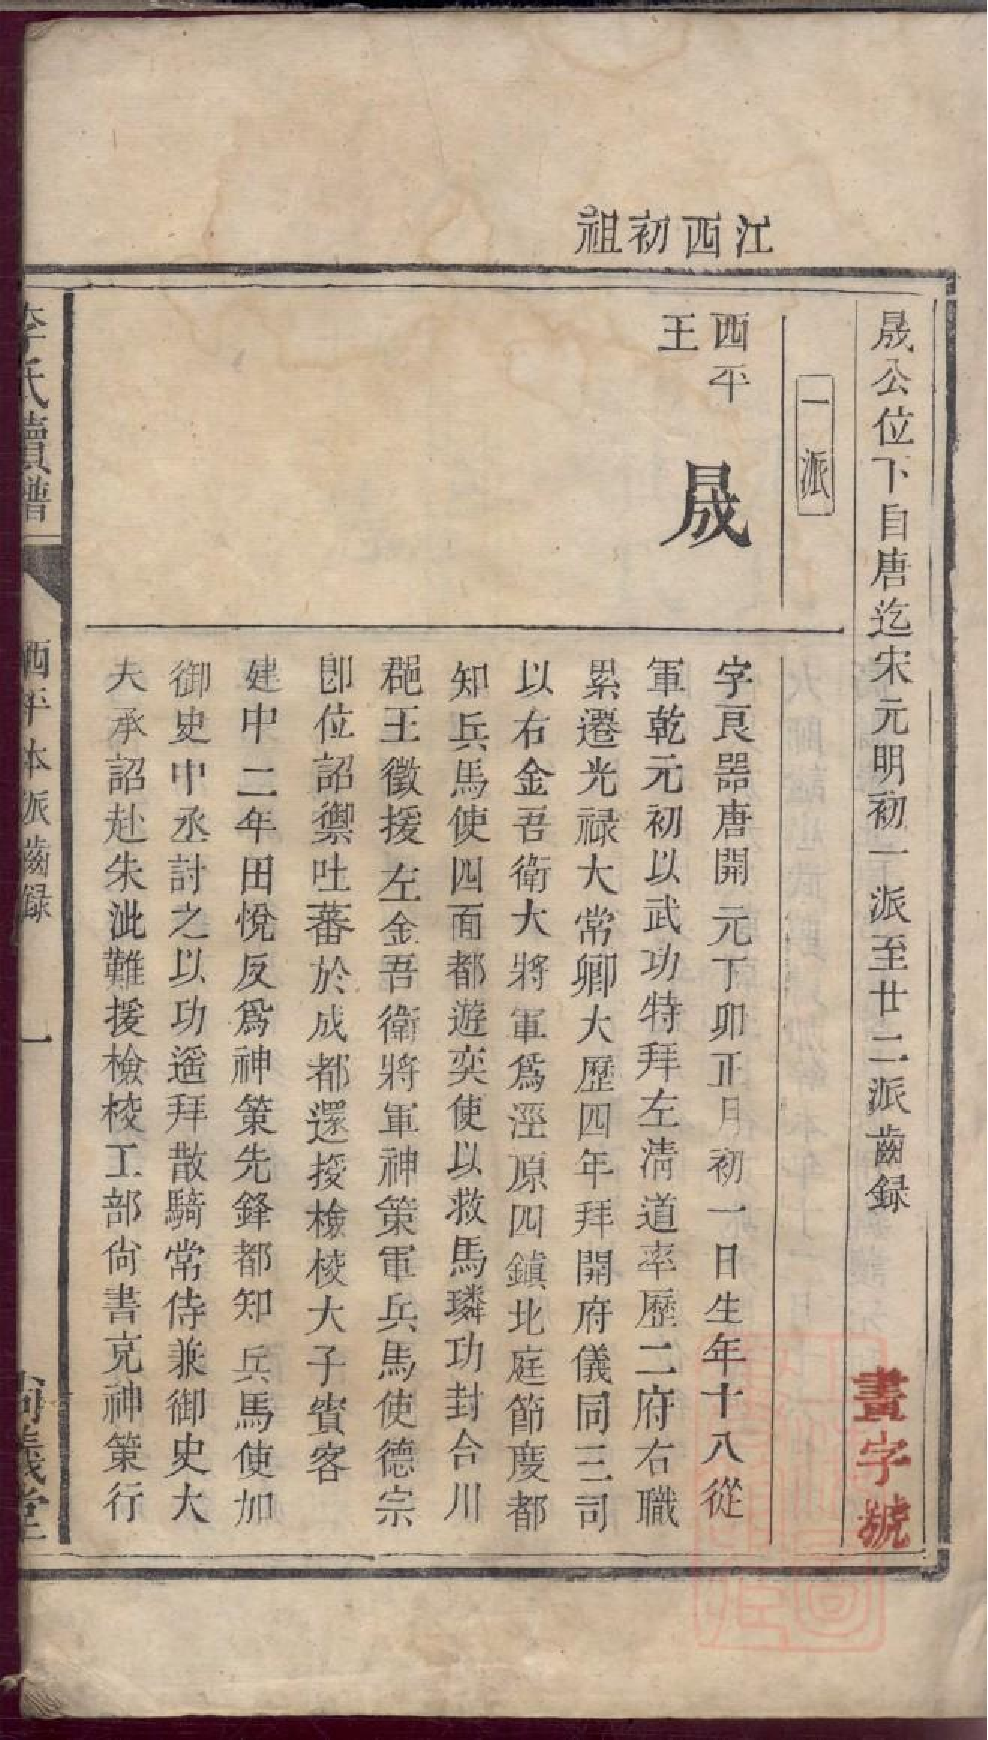 江西初祖
晟公位下自唐迄宋元明初一派至廿二派齒録
畫字號
一派
西平
王
晟
字良器唐開元丁卯正月初一日生年十八從
軍乾元初以武功特拜左清道率歷二府右職
累遷光禄大常卿大歷四年拜開府儀同三司
以右金吾衛大將軍爲涇原四鎮北庭節度都
知兵馬使四面都遊奕使以救馬璘功封合川
郡王徵援左金吾衛將軍神策軍兵馬使德宗
卽位詔禦吐蕃於成都還授檢校大子賓客
建中二年田悅反爲神策先鋒都知兵馬使加
御史中丞討之以功遥拜散騎常侍兼御史大
夫承詔赴朱泚難援檢校工部尙書克神策行
李氏續譜
西平本派齒録
一
尚義堂